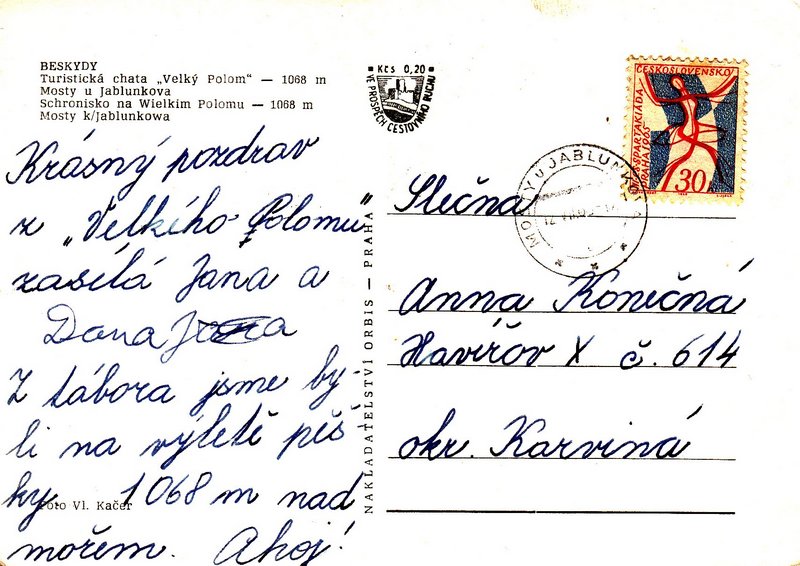 BESKYDY
Turistická chata „Velký Polom“ — 1068 m
Mosty u Jablunkova
Schronisko na Wielkim Polomu — 1068 m
Mosty k/Jablunkowa
Kčs 0,20
VE PROSPĚCH CESTOVNÍHO RUCHU
ČESKOSLOVENSKO
SPARTAKIÁDA
PRAHA 1965
30
MOSTY U JABLUNKOVA
Krásný pozdrav
z „Velkého Polomu“
zasílá Jana a
Dana
Z tábora jsme by-
li na výletě pěš
ky. 1068 m nad
mořem. Ahoj!
Foto Vl. Kačer
NAKLADATELSTVÍ ORBIS — PRAHA
Slečna
Anna Konečná
Havířov X č. 614
okr. Karviná